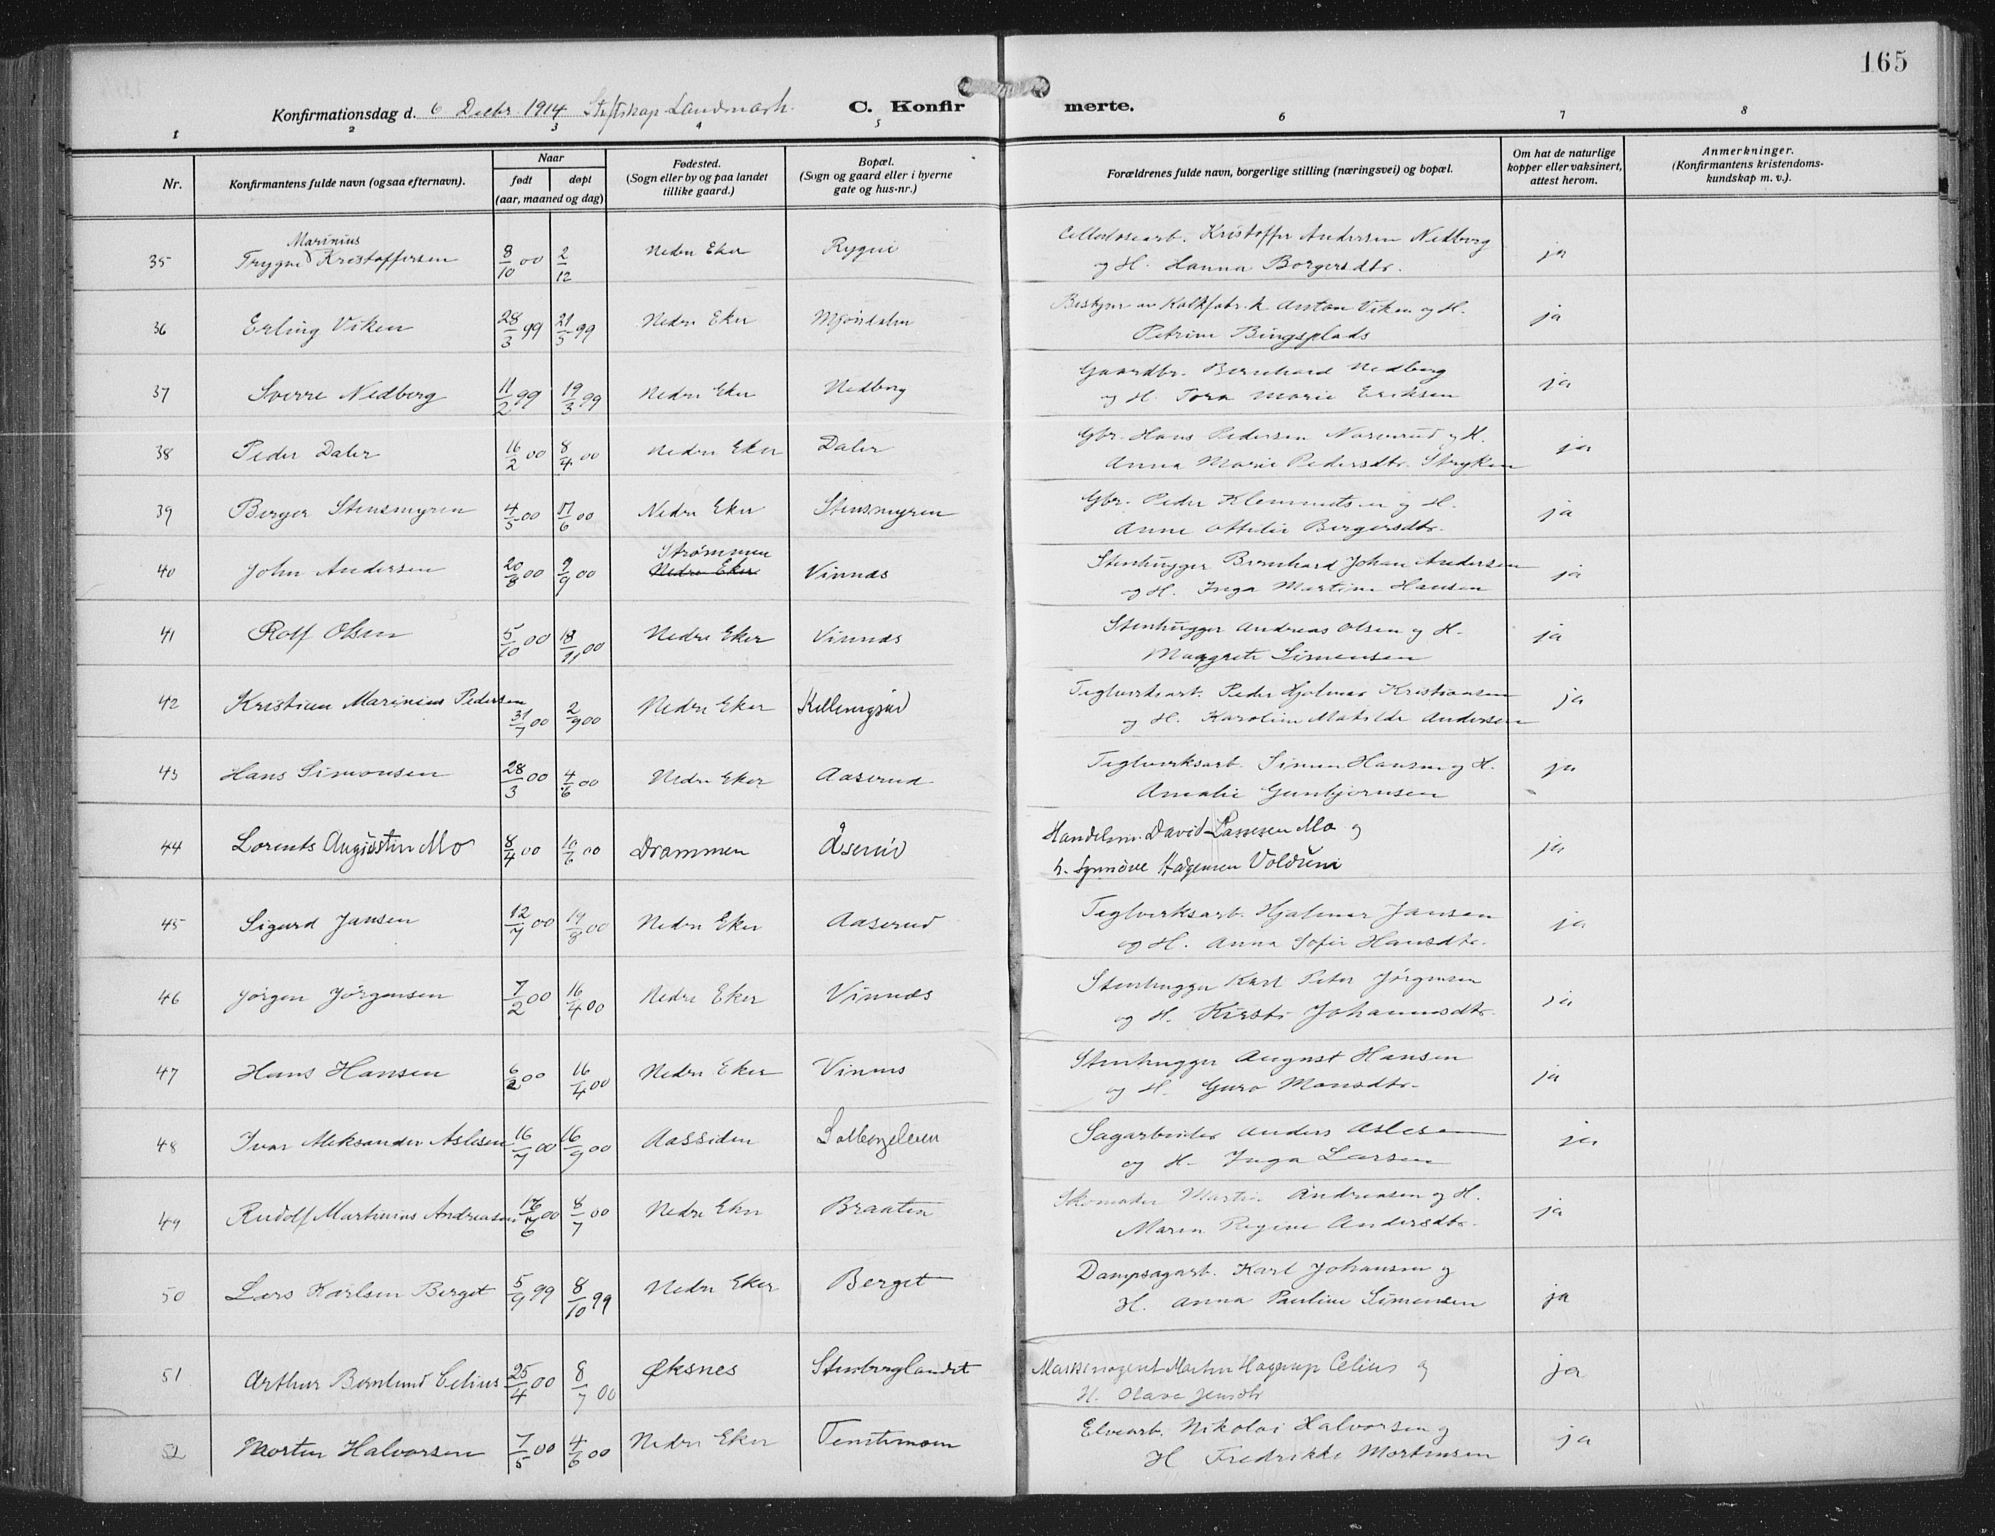 165
Konfirmationsdag d. 6 Decbr 1914 Stiftskap. Landmark. C. Konfirmerte.
1 2 3 4 5 6 7 8
Nr. Konfirmantens fulde navn (ogsaa efternavn). Naar født døpt (aar, maaned og dag) Fødested. (Sogn eller by og paa landet tillike gaard.) Bopæl. (Sogn og gaard eller i byerne gate og hus-nr.) Forældrenes fulde navn, borgerlige stilling (næringsvei) og bopæl. Om hat de naturlige kopper eller vaksinert, attest herom. Anmerkninger. (Konfirmantens kristendomskundskap m. v.).
Marinius
35 Trygve Kristoffersen 8/10 00 2/12 Nedre Eker Rygni Cellulosearb. Kristoffer Andersen Nedberg ja
og H. Hanna Borgersdtr.
36 Erling Viken 28/3 99 21/5 99 Nedre Eker Mjöndalen Bestyrer av Kalkfabrik Anton Viken og H. ja
Petrine Bingsplads
37 Sverre Nedberg 11/2 99 19/3 99 Nedre Eker Nedberg Gaardbr. Bernhard Nedberg ja
og H. Tora Marie Eriksen
38 Peder Daler 16/2 00 8/4 00 Nedre Eker Daler Gbr. Hans Pedersen Narverud og H. ja
Anna Marie Pedersdtr. Stryken
39 Berger Stensmyren 4/5 00 17/6 00 Nedre Eker Stensmyren Gbr. Peder Klemmetsen og H. ja
Anne Ottilie Bergersdtr.
Strømmen
40 John Andersen 20/8 00 9/9 00 Nedre Eker Vinnes Stenhugger Bernhard Johan Andersen ja
og H. Inga Martine Hansen
41 Rolf Olsen 5/10 00 18/11 00 Nedre Eker Vinnes Stenhugger Andreas Olsen og H. ja
Margrete Simensen
42 Kristian Marinius Pedersen 31/7 00 2/9 00 Nedre Eker Killingrud Teglverksarb. Peder Hjalmar Kristiansen ja
og H. Karoline Matilde Andersen
43 Hans Simonsen 28/3 00 4/6 00 Nedre Eker Aaserud Teglverksarb. Simen Hansen og H. ja
Amalie Gunbjørnsen
44 Lorents Augustin Mo 8/4 00 10/6 00 Drammen Åserud Handelsm. David Lassesen Mo og ja
h. Synnöve Hågensen Voldum
45 Sigurd Jansen 12/7 00 19/8 00 Nedre Eker Aaserud Teglverksarb. Hjalmar Jansen ja
og H. Anna Sofie Hansdtr.
46 Jörgen Jörgensen 7/2 00 16/4 00 Nedre Eker Vinnes Stenhugger Karl Peter Jörgensen ja
og H. Kirsti Johannesdtr.
47 Hans Hansen 6/2 00 16/4 00 Nedre Eker Vinnes Stenhugger August Hansen ja
og H. Guro Monsdtr.
48 Ivar Aleksander Aslesen 16/7 00 16/9 00 Aassiden Solbergelven Sagarbeider Anders Aslesen ja
og H. Inga Larsen
49 Rudolf Martinius Andreasen 17/6 00 8/7 00 Nedre Eker Braaten Skomaker Martin Andreasen og H. ja
Maren Regine Andersdtr.
50 Lars Karlsen Berget 5/9 99 8/10 99 Nedre Eker Berget Dampsagarb. Karl Johansen og ja
H. Anna Pauline Simensen
51 Arthur Bernlund Celius 25/4 00 8/7 00 Øksnes Stenberglandet Maskinagent Martin Hagerup Celius og ja
H. Olava Jensdtr
52 Morten Halvorsen 7/5 00 4/6 00 Nedre Eker Temtemoen Elvearb. Nikolai Halvorsen og ja
H Fredrikke Mortensen